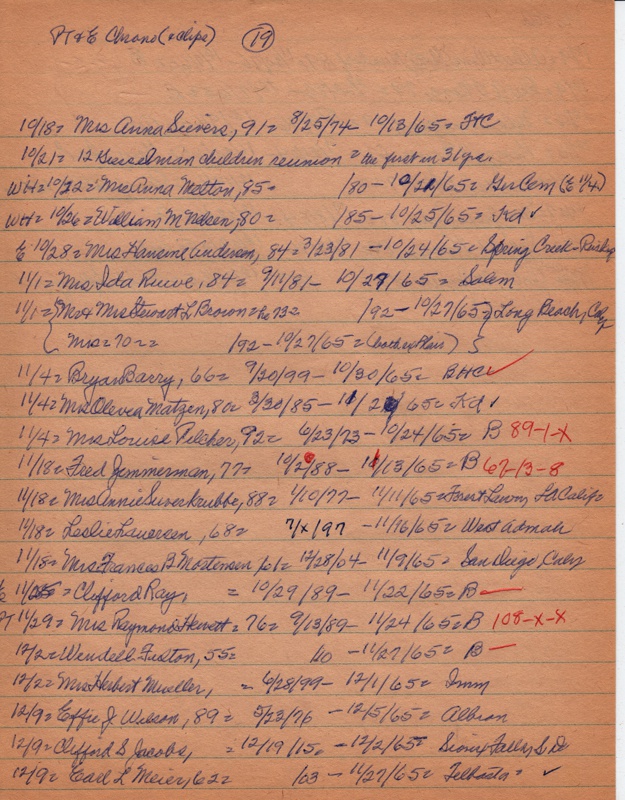 PT & E Chrono (& clips) 19
10/18= Mrs Anna Sievers, 91= 8/25/74- 10/13/65=
10/21= 12 children reunion = the first in 31 yrs.
WH=10/22= Mrs Anna 95= /80- 65= Cem (E 11/4)
WH= 10/26= William M Nelsen, 80= /85- 10/25/65= Kd ✓
E 10/28= Mrs Hansine Anderson, 84= 3/23/81 -10/24/65= Spring Creek-
11/1= Mrs Ida Ruwe, 84= 9/11/81- 10/29/65= Salem
11/1= { Mr & Mrs Stewart L Brown= he 73= /92- 10/27/65= } Long Beach,
{ Mrs=70= /92-10/27/65= }
11/4= Bryan Barry, 66= 9/20/99- 10/30/65= BHC ✓
11/4= Mrs Olevea Matzen, 80= 3/30/85- 65= Kd ✓
11/4= Mrs Louise Pilcher, 92= 6/23/73-10/24/65= B 89-1-X
11/18= Fred 77= 10/2/88- 11/13/65= B 67-13-8
11/18= Mrs Annie 88= 1/10/77- 11/11/65= Forest Lawn, Calif=
11/18= Leslie Laursen, 68= 7/X/97 -11/16/65= West Admah
11/18= Mrs Frances B Mortensen, 61= 12/28/04- 11/9/65= San Diego,
= Clifford Ray, = 10/29/89- 11/22/65= B
PT 11/29= Mrs Raymond 76= 9/13/89- 11/24/65= B 108-X-X
12/2= Wendell 55= /10 -11/27/65= B
12/2= Mrs Herbert Mueller, = 6/28/99- 12/1/65= Imm
12/9= Effie J. Wilson, 89= 5/23/76 -12/5/65= Albion
12/9= Clifford S Jacobs, = 12/19/15= -12/2/65= Sioux Falls, S D
12/9= Earl L Meier, 62= /03- 11/27/65= ✓